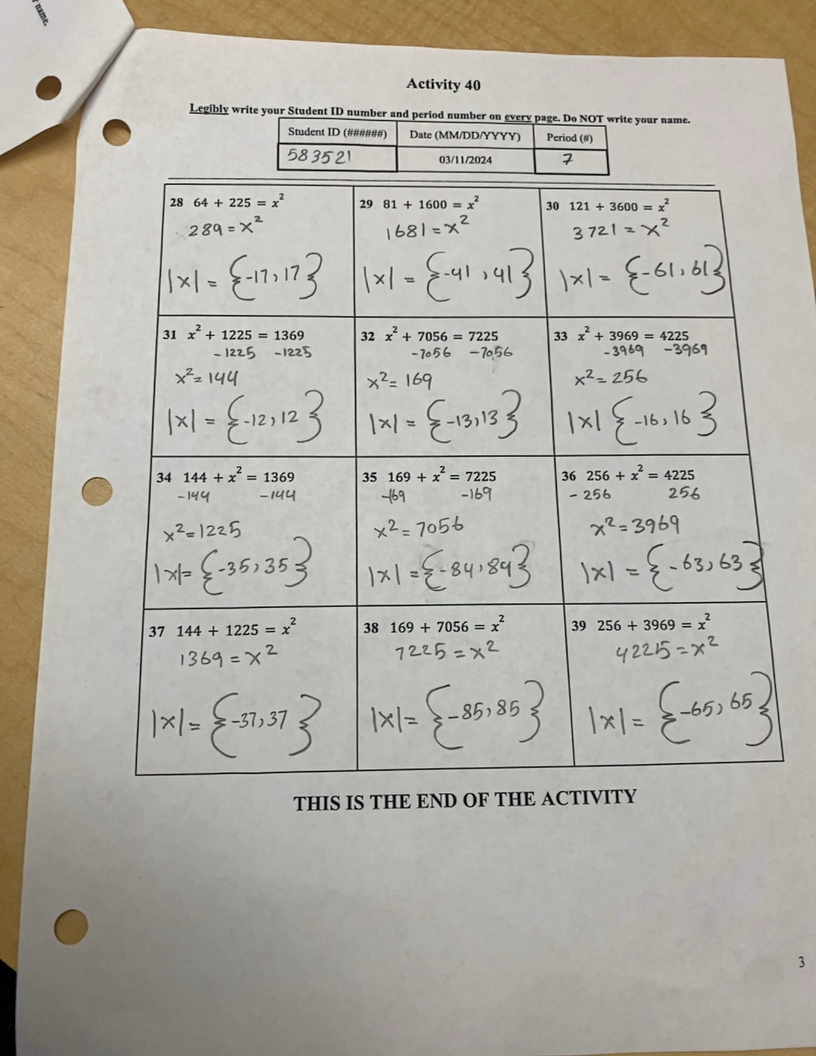 r name.
Activity 40
Legibly write your Student ID number and period number on every page. Do NOT write your name.
Student ID (######) Date (MM/DD/YYYY) Period (#)
583521 03/11/2024 7
28 64 + 225 = x²
289 = x²
|x| = {-17, 17}
29 81 + 1600 = x²
1681 = x²
|x| = {-41, 41}
30 121 + 3600 = x²
3721 = x²
|x| = {-61, 61}
31 x² + 1225 = 1369
-1225 -1225
x² = 144
|x| = {-12, 12}
32 x² + 7056 = 7225
-7056 -7056
x² = 169
|x| = {-13, 13}
33 x² + 3969 = 4225
-3969 -3969
x² = 256
|x| {-16, 16}
34 144 + x² = 1369
-144 -144
x² = 1225
|x| = {-35, 35}
35 169 + x² = 7225
-169 -169
x² = 7056
|x| = {-84, 84}
36 256 + x² = 4225
-256 256
x² = 3969
|x| = {-63, 63}
37 144 + 1225 = x²
1369 = x²
|x| = {-37, 37}
38 169 + 7056 = x²
7225 = x²
|x| = {-85, 85}
39 256 + 3969 = x²
4225 = x²
|x| = {-65, 65}
THIS IS THE END OF THE ACTIVITY
3